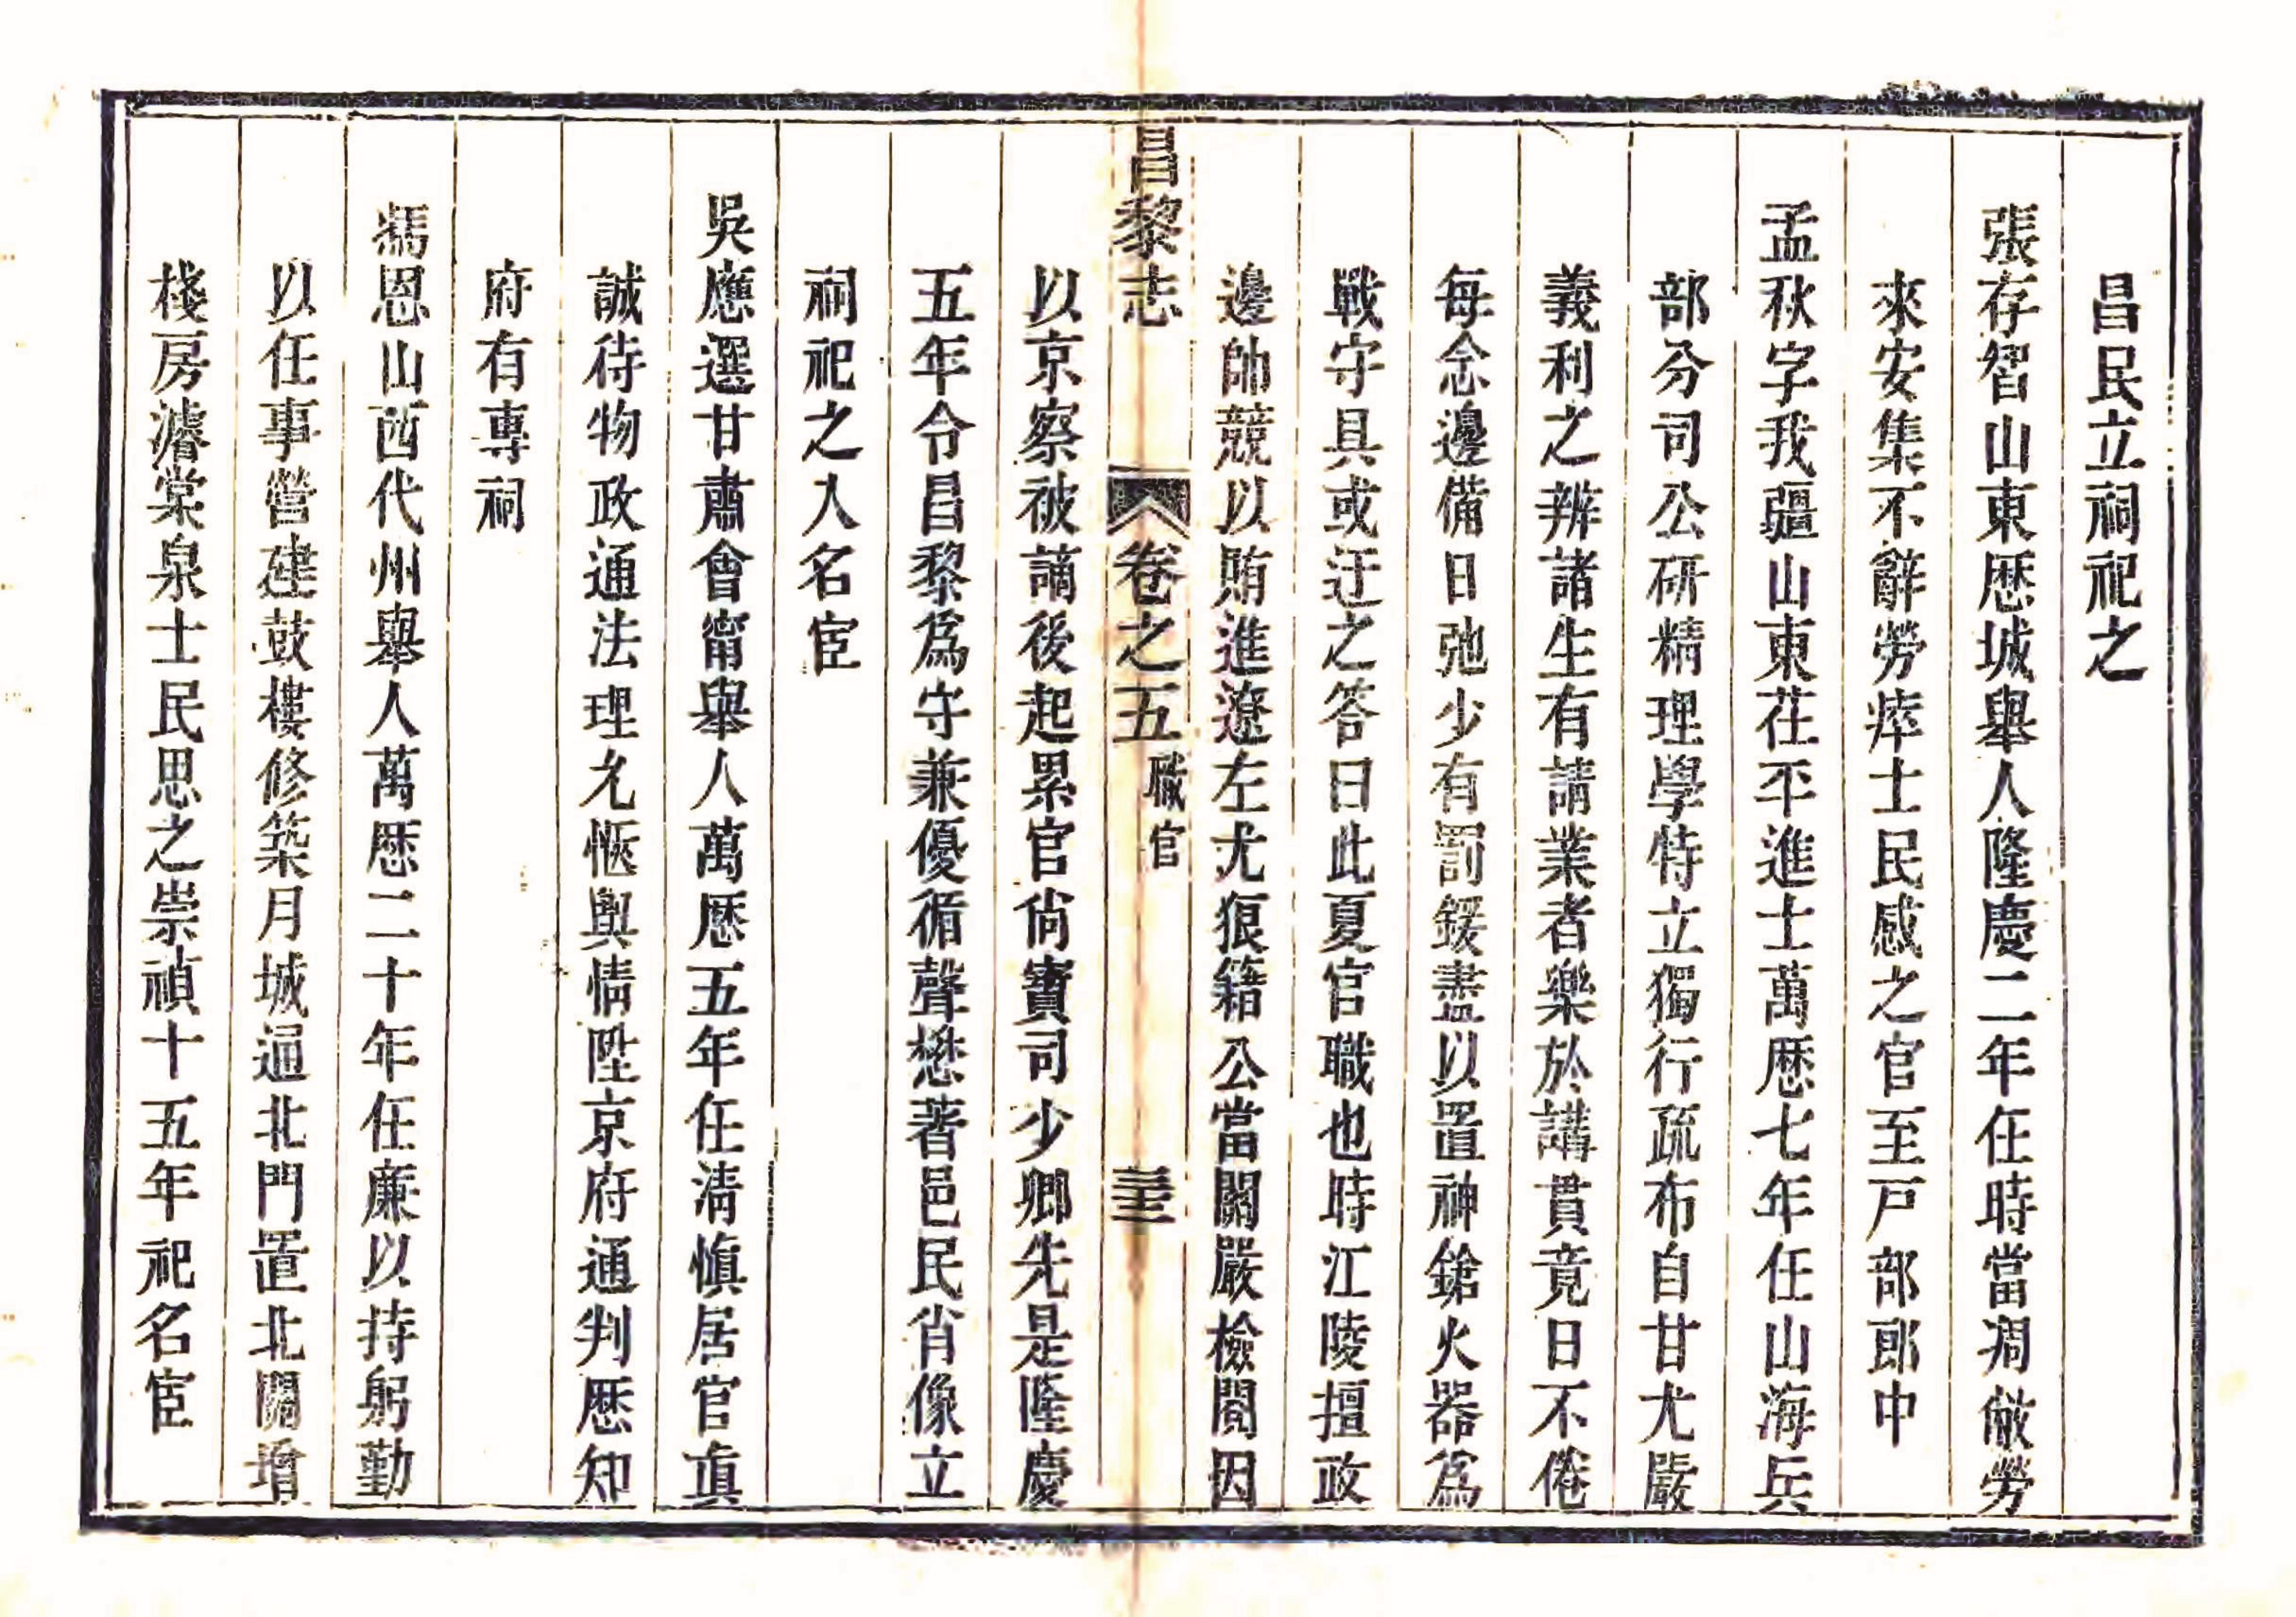 昌民立祠祀之
張存智山東歴城舉人隆慶二年任時當凋敝勞
來安集不辭勞瘁士民感之官至戸部郎中
孟秋字我疆山東茌平進士萬歴七年任山海兵
部分司公研精理學特立獨行疏布自甘尤嚴
義利之辨諸生有請業者樂於講貫竟日不倦
每念邊備日弛少有罰鍰盡以置神鎗火器爲
戰守具或迂之答曰此夏官職也時江陵擅政
邊帥競以賄進遼左尤狼籍公當關嚴檢閱因
昌黎志 卷之五 職官 三十三
以京察被謫後起累官尙寶司少卿先是隆慶
五年令昌黎爲守兼優循聲懋著邑民肖像立
祠祀之入名宦
吳應選甘肅會甯舉人萬歴五年任淸愼居官眞
誠待物政通法理允愜輿情陞京府通判歴知
府有專祠
馮恩山西代州舉人萬歴二十年任廉以持躬勤
以任事營建鼓樓修築月城通北門置北關增
棧房濬棠泉士民思之崇禎十五年祀名宦